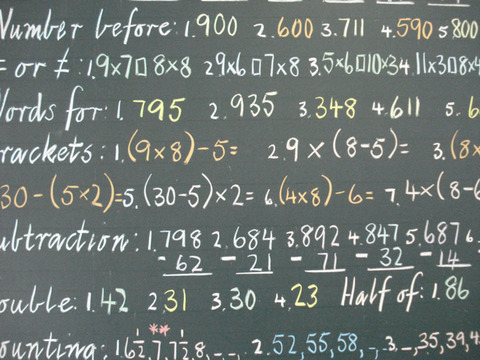 Number before: 1.900 2.600 3.711 4.590 5 800
= or ≠: 1.9x7□8x8 2 9x6□7x8 3.5x6□10x3 4.11x3□8x4
Words for: 1.795 2.935 3.348 4.611 5.6
rackets: 1.(9x8)-5= 2.9x(8-5)= 3.(8x
30-(5x2)= 5.(30-5)x2= 6.(4x8)-6= 7.4x(8-6
ubtraction: 1.798 2.684 3.892 4.847 5.687 6.
-62 -21 -71 -32 -14
ouble: 1.42 2.31 3.30 4.23 Half of: 1.86
**
ounting: 1.6½,7,7½,8,-,-. 2.52,55,58,-, 3.-,35,39,4